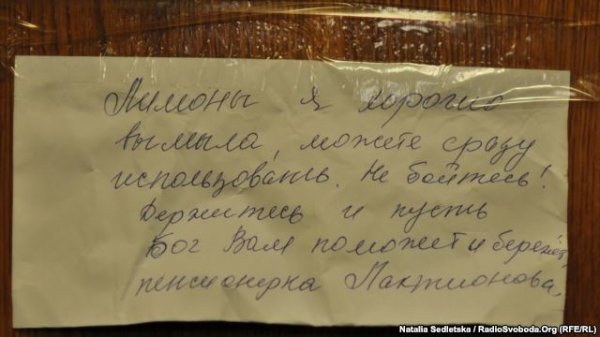 Лимоны я хорошо
вымыла, можете сразу
использовать. Не бойтесь!
Держитесь и пусть
Бог Вам поможет и бережёт
пенсионерка Лактионова.
Natalia Sedletska / RadioSvoboda.Org (RFE/RL)